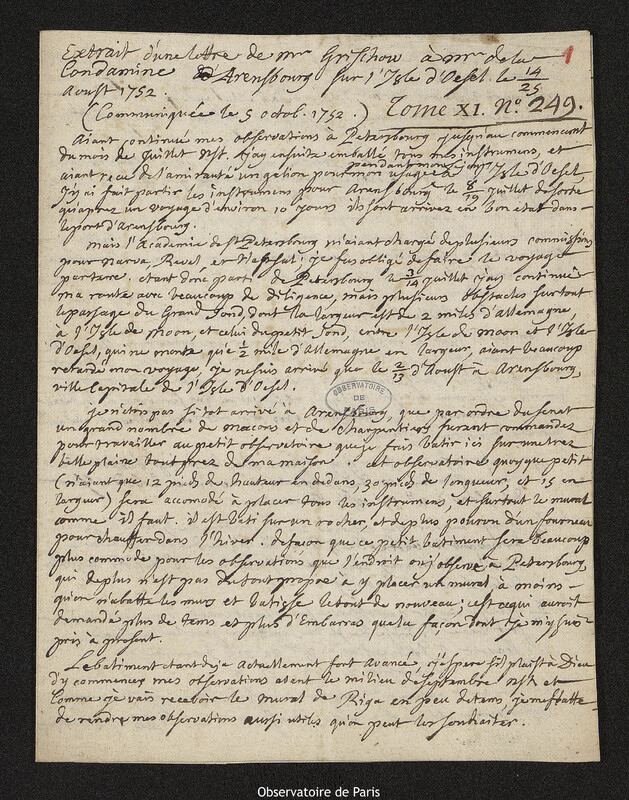 Extrait d'une lettre de mr Grischow à mr de la
Condamine D'Arensbourg sur l'Isle d'Oesel le 14/25
Aoust 1752.
1
(Communiquée le 5 octob. 1752.) Tome XI. No 249.
Aiant continué mes observations à Petersbourg jusqu'au commencement
du mois de Juillet nst. j'ay ensuite emballé tous mes instrumens, et
aiant reçu de l'amirauté un galion pour mon usage
pendant mon sejour à l'Isle d'Oesel,
j'y ai fait partir les instrumens pour Arensbourg le 8/19 Juillet de sorte
qu'aprez un voyage d'environ 10 jours ils sont arrivez en bon etat dans
le port d'Arensbourg.
mais l'Academie de St Petersbourg m'aiant chargé de plusieurs commissions
pour Narva, Revel et Hapsal; je fus obligé de faire le voyage
par terre. etant donc parti de Petersbourg le 3/14 Juillet j'ay continué
ma route avec beaucoup de diligence, mais plusieurs obstacles surtout
le passage du Grand Sond, dont la largeur est de 2 miles d'Allemagne,
à l'Isle de Moon, et celui du petit Sond, entre l'Isle de Moon et l'Isle
d'Oesel, qui ne monte qu'à 1/2 mile d'Allemagne en largeur, aiant beaucoup
retardé mon voyage, je ne suis arrivé que le 2/13 d'Aoust à Arensbourg,
ville Capitale de l'Isle d'Oesel.
OBSERVATOIRE
DE
PARIS
je n'etois pas si tot arrivé à Arensbourg, que par ordre du senat
un grand nombre de macons et de Charpentiers furent commandez
pour travailler au petit observatoire que je fais batir ici sur une trez
belle plaine tout prez de ma maison. cet observatoire quoyque petit
(n'aiant que 12 pieds de hauteur en dedans, 30 pieds de longueur, et 15 en
largeur) sera accomodé à placer tous les instrumens, et surtout le mural
comme il faut. il est bati sur un rocher, et de plus pourvu d'un fourneau
pour chauffer dans l'hiver. de façon que ce petit batiment sera beaucoup
plus commode pour les observations que l'endroit où j'observe à Petersbourg
qui de plus n'est pas du tout propre à y placer un mural, à moins
qu'on n'abatte les murs et batisse le tout de nouveau; c'est ce qui auroit
demandé plus de tems et plus d'Embarras que la façon dont je m'y suis
pris à present.
Le batiment etant deja actuellement fort avancé, j'espere s'il plaist à Dieu
d'y commencer mes observations avent le milieu de septembre nst. et
comme je vais recevoir le mural de Riga en peu de tems, je me flatte
de rendre mes observations aussi utiles qu'on peut les souhaiter.
Observatoire de Paris